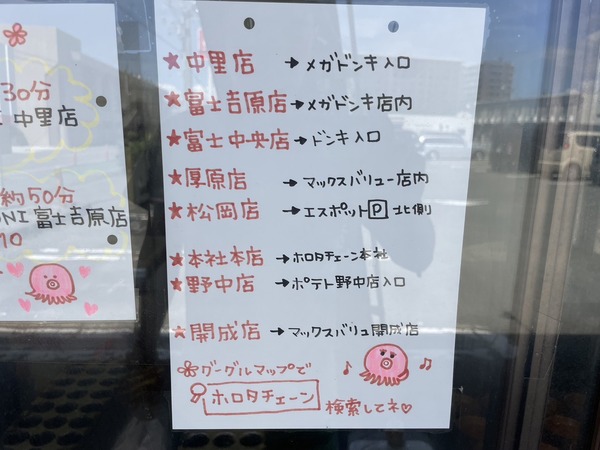 30分
中里店
約50分
NI 富士吉原店
10
★中里店 →メガドンキ入口
★富士吉原店→メガドンキ店内
★富士中央店→ドンキ入口
★厚原店 →マックスバリュー店内
★松岡店 →エスポットP北側
★本社本店 →ホロタチェーン本社
★野中店 →ポテト野中店入口
★開成店 →マックスバリュ開成店
グーグルマップで
ホロタチェーン 検索してネ♡